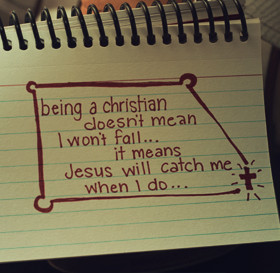 being a christian
doesn't mean
I won't fall...
it means
Jesus will catch me
when I do...